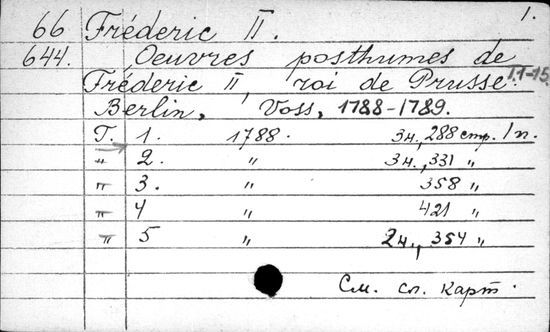 1.
66 Fréderic II.
644. Oeuvres posthumes de
Fréderic II, roi de Prusse. T.1-15
Berlin, Voss, 1788-1789.
T. 1. 1788. 3н., 288 стр. 1 п.
" 2. " 3н., 331 "
" 3. " 358 "
" 4 " 421 "
" 5 " 2н., 354 "
См. сл. карт.